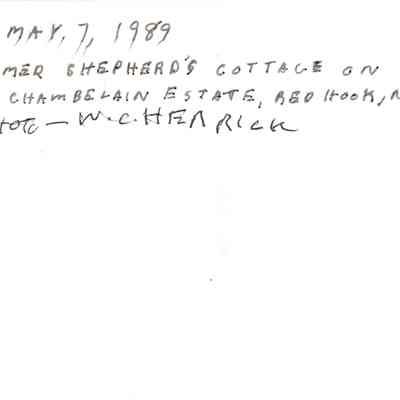 MAY, 7, 1989
MER SHEPHERD'S COTTAGE ON
CHAMBELAIN ESTATE, RED HOOK, N
HOTO — W.C. HERRICK